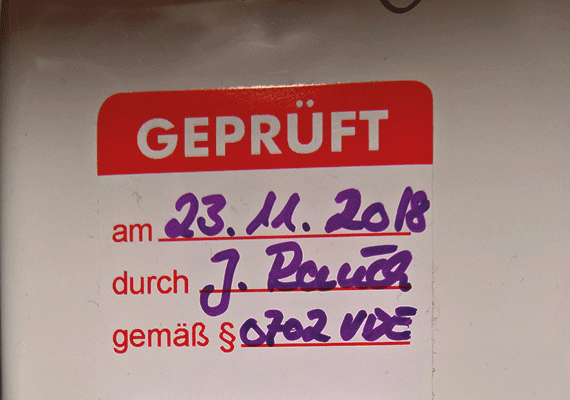 GEPRÜFT
am 23.11.2018
durch J. Rauch
gemäß § 0702 VDE